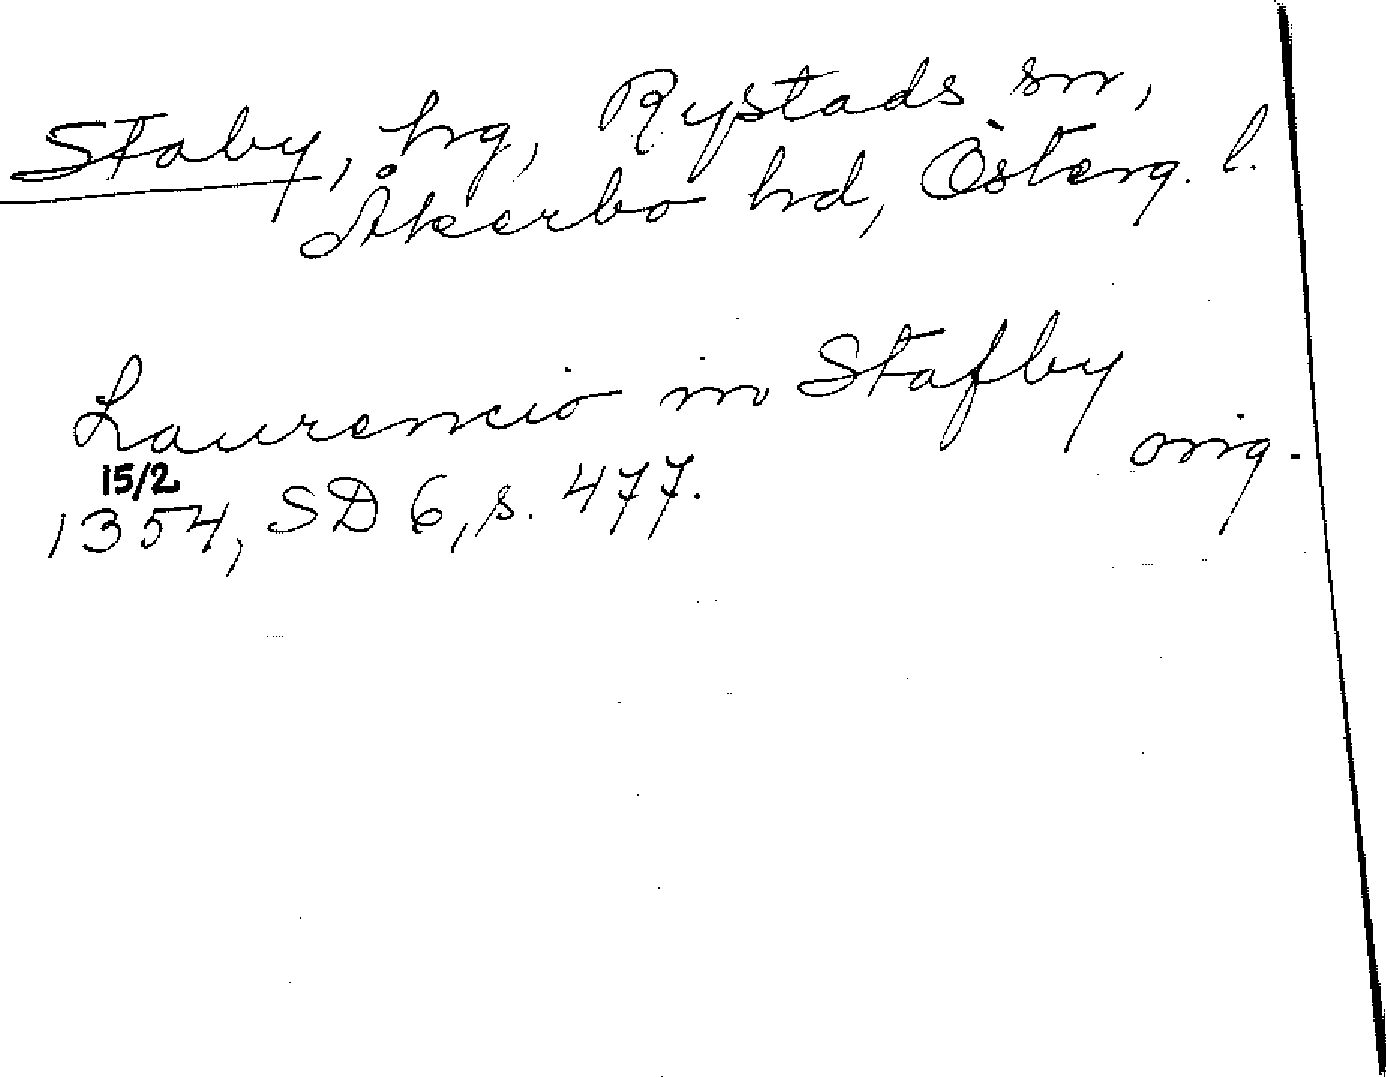 Staby, hg, Rystads sn,
Åkerbo hd, Österg. l.
Laurencio in Stafby
orig.
15/2
1354, SD 6, s. 477.